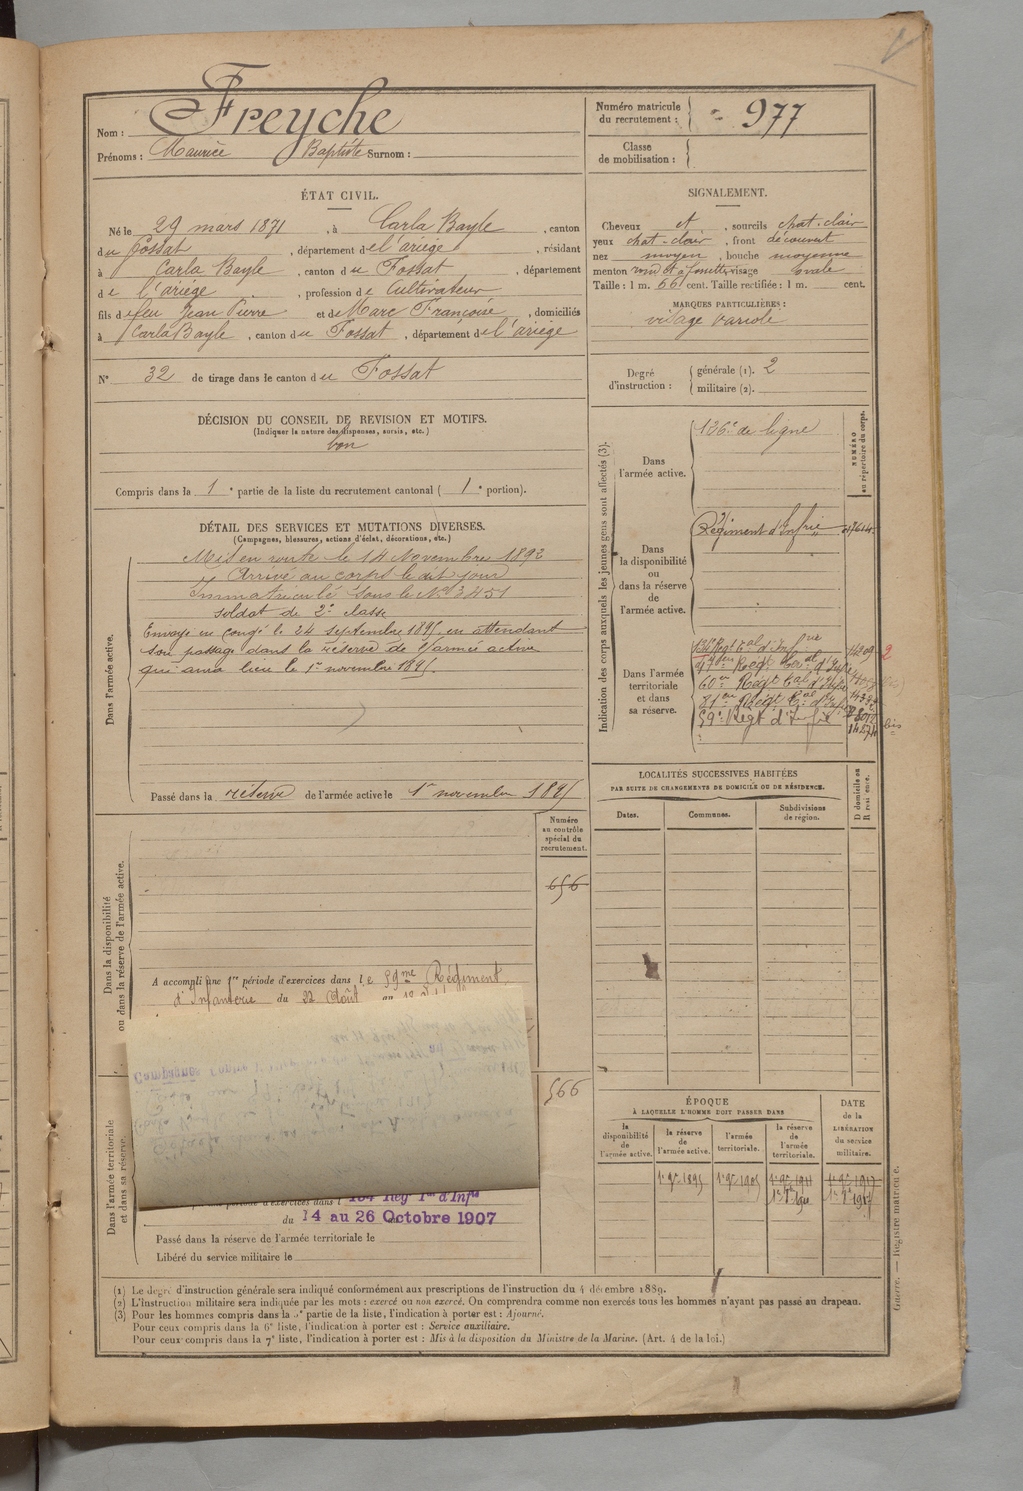 Nom : Freyche
Prénoms : Maurice Baptiste Surnom :
Numéro matricule du recrutement : 977
Classe de mobilisation :
ÉTAT CIVIL.
Né le 29 mars 1871, à Carla Bayle, canton
du Fossat, département de l'ariège, résidant
à Carla Bayle, canton du Fossat, département
de l'ariège, profession de Cultivateur
fils de feu Jean Pierre et de Marc Françoise, domiciliés
à Carla Bayle, canton du Fossat, département de l'ariège
N° 32 de tirage dans le canton du Fossat
SIGNALEMENT.
Cheveux et, sourcils chat-clair
yeux chat-clair, front découvert
nez moyen, bouche moyenne
menton rond et à fossette visage ovale
Taille : 1 m. 66 cent. Taille rectifiée : 1 m. cent.
MARQUES PARTICULIÈRES :
visage variolé
Degré d'instruction : générale (1). 2
militaire (2).
DÉCISION DU CONSEIL DE REVISION ET MOTIFS.
(Indiquer la nature des dispenses, sursis, etc.)
bon
Compris dans la 1e partie de la liste du recrutement cantonal (1e portion).
DÉTAIL DES SERVICES ET MUTATIONS DIVERSES.
(Campagnes, blessures, actions d'éclat, décorations, etc.)
Dans l'armée active.
Mis en route le 14 Novembre 1892
Arrivé au corps le dit jour
Immatriculé sous le N° 3451
soldat de 2e classe
Envoyé en congé le 24 septembre 1895 en attendant
son passage dans la réserve de l'armée active
qui aura lieu le 1er novembre 1895.
Passé dans la réserve de l'armée active le 1er novembre 1895
Indication des corps auxquels les jeunes gens sont affectés (3).
NUMÉRO au répertoire du corps.
Dans l'armée active.
126e de ligne
Dans la disponibilité ou dans la réserve de l'armée active.
Régiment d'Infrie
Dans l'armée territoriale et dans sa réserve.
134 Régt tal d'Infrie
60en Régt tal d'Infrie
81en Régt tal d'Infrie
59e Régt d'Infie
LOCALITÉS SUCCESSIVES HABITÉES
PAR SUITE DE CHANGEMENTS DE DOMICILE OU DE RÉSIDENCE.
Dates. Communes. Subdivisions de région. D domicile ou R résidence.
Numéro au contrôle spécial du recrutement.
656
566
Dans la disponibilité ou dans la réserve de l'armée active.
A accompli une 1re période d'exercices dans le 59me Régiment
d'Infanterie du 22 Août au
Dans l'armée territoriale et dans sa réserve.
Campagne contre
période d'exercices dans l 134 Reg Ter d'Infie
du 14 au 26 Octobre 1907
Passé dans la réserve de l'armée territoriale le
Libéré du service militaire le
ÉPOQUE
À LAQUELLE L'HOMME DOIT PASSER DANS
la disponibilité de l'armée active.
la réserve de l'armée active.
l'armée territoriale.
la réserve de l'armée territoriale.
DATE de la LIBÉRATION du service militaire.
1er 9bre 1895 1er 9bre 1905 1er 9bre 1911 1er 9bre 1917
(1) Le degré d'instruction générale sera indiqué conformément aux prescriptions de l'instruction du 4 décembre 1889.
(2) L'instruction militaire sera indiquée par les mots : exercé ou non exercé. On comprendra comme non exercés tous les hommes n'ayant pas passé au drapeau.
(3) Pour les hommes compris dans la 5e partie de la liste, l'indication à porter est : Ajourné.
Pour ceux compris dans la 6e liste, l'indication à porter est : Service auxiliaire.
Pour ceux compris dans la 7e liste, l'indication à porter est : Mis à la disposition du Ministre de la Marine. (Art. 4 de la loi.)
Guerre. — Registre matricule.